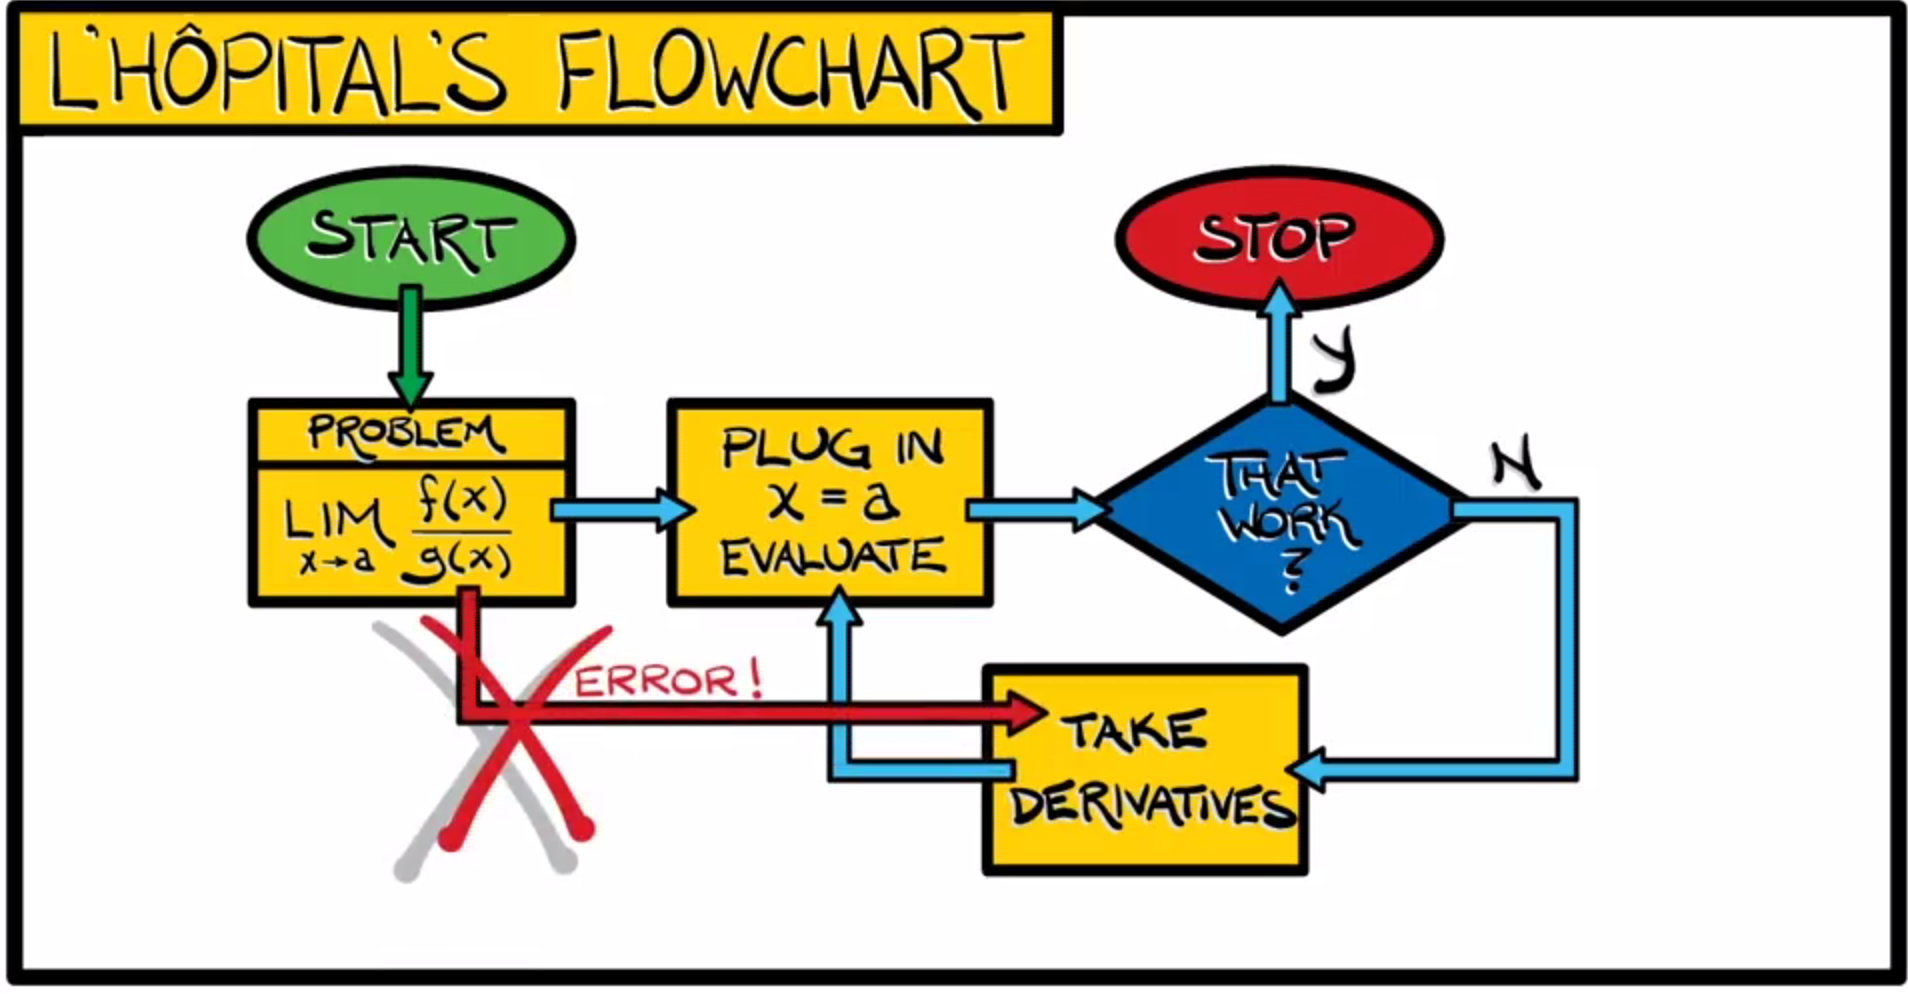 L'HÔPITAL'S FLOWCHART
START
STOP
Y
PROBLEM
LIM f(x)
x→a g(x)
PLUG IN
x = a
EVALUATE
THAT
WORK
?
N
ERROR!
TAKE
DERIVATIVES